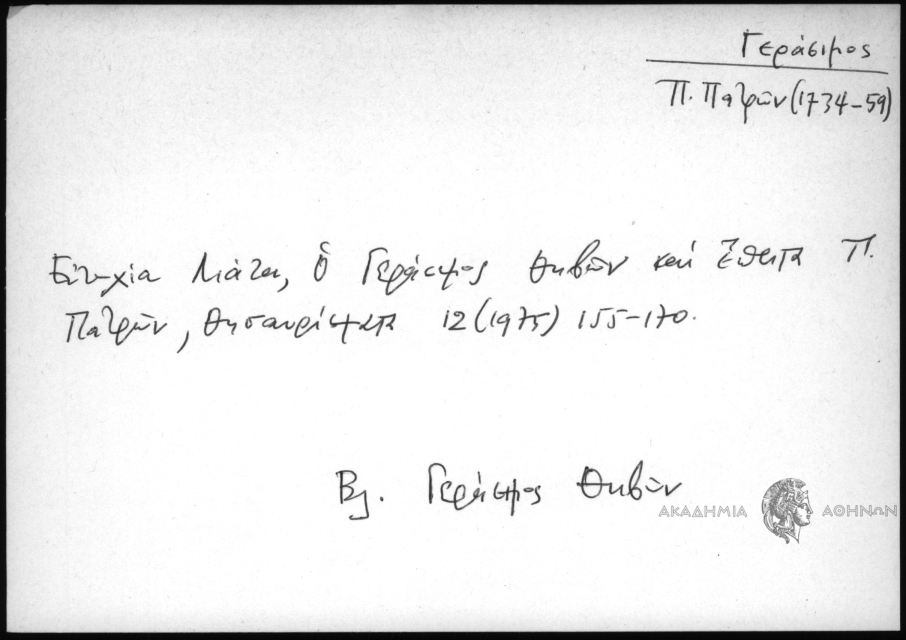 Γεράσιμος
Π. Πατρῶν (1734-59)
Εὐτυχία Λιάτα, ὁ Γεράσιμος Θηβῶν καὶ ἔπειτα Π.
Πατρῶν, Θησαυρίσματα 12 (1975) 155-170.
Βλ. Γεράσιμος Θηβῶν
ΑΚΑΔΗΜΙΑ ΑΘΗΝΩΝ